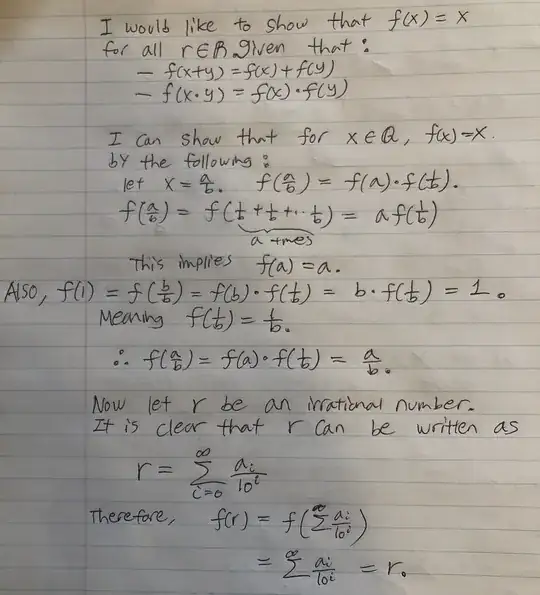 I would like to show that f(x) = x
for all r∈R given that:
– f(x+y) = f(x) + f(y)
– f(x·y) = f(x)·f(y)
I can show that for x∈Q, f(x)=x.
by the following:
let x = a/b. f(a/b) = f(a)·f(1/b).
f(a/b) = f(1/b + 1/b + ·· 1/b) = a f(1/b)
a times
This implies f(a) = a.
Also, f(1) = f(b/b) = f(b)·f(1/b) = b·f(1/b) = 1.
Meaning f(1/b) = 1/b.
∴ f(a/b) = f(a)·f(1/b) = a/b.
Now let r be an irrational number.
It is clear that r can be written as
r = ∑_{i=0}^{∞} a_i/10^i
Therefore, f(r) = f(∑^{∞} a_i/10^i)
= ∑^{∞} a_i/10^i = r.